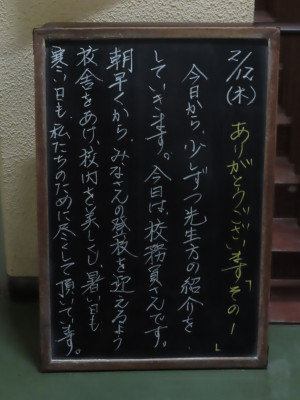 2/12(木)
ありがとうございます「その1」
今日から、少しずつ先生方の紹介を
していきます。今日は、校務員さんです。
朝早くから、みなさんの登校を迎えるよう
校舎をあけ、校内を美しくし、暑い日も
寒い日も私たちのために尽くして頂いてます。